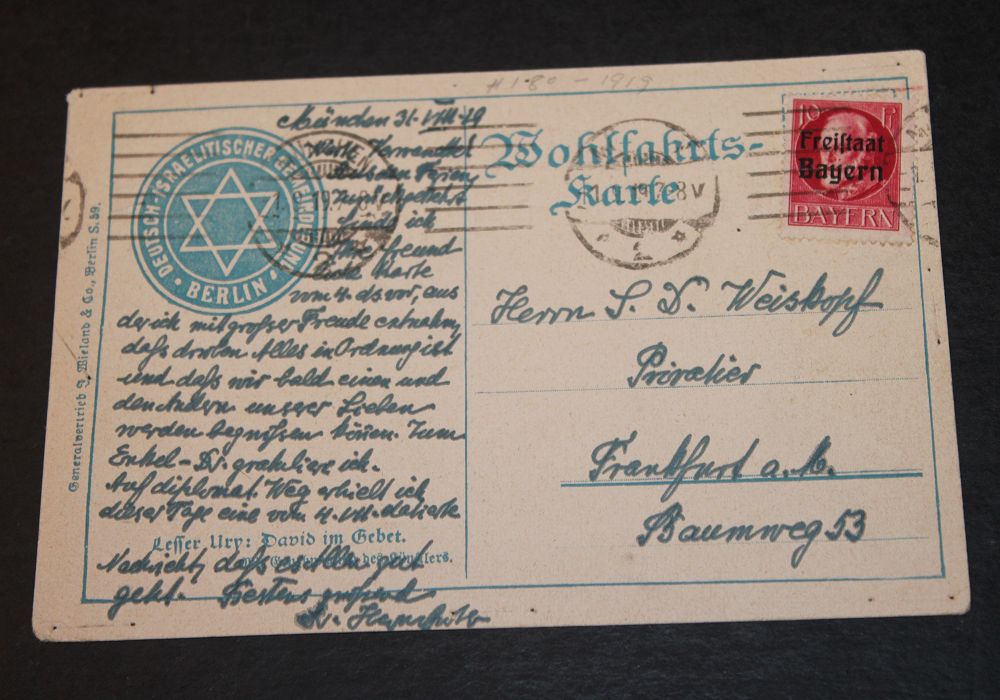 H 1 80 - 1919
München 31. VIII. 19
Werte Verwandte!
Aus den Ferien
zurückgekehrt
finde ich
Ihre freund
liche Karte
vom 4. ds vor, aus
der ich mit großer Freude entnahm,
daß droben Alles in Ordnung ist
und daß wir bald einen und
den Andern unserer Lieben
werden begrüßen können. Zum
Enkel - gratuliere ich.
Auf diplomat. Weg erhielt ich
dieser Tage eine vom 4. datierte
Nachricht, daß es Allen gut
geht. Bestens grüßend
DEUTSCH-ISRAELITISCHER GEMEINDEBUND
BERLIN
Lesser Ury: David im Gebet.
des Künstlers.
Generalvertrieb J. Wieland & Co., Berlin S. 59.
Wohlfahrts-
Karte
10 Pf
Freistaat
Bayern
BAYERN
8 V
2
Herrn S. D. Weiskopf
Privatier
Frankfurt a. M.
Baumweg 53